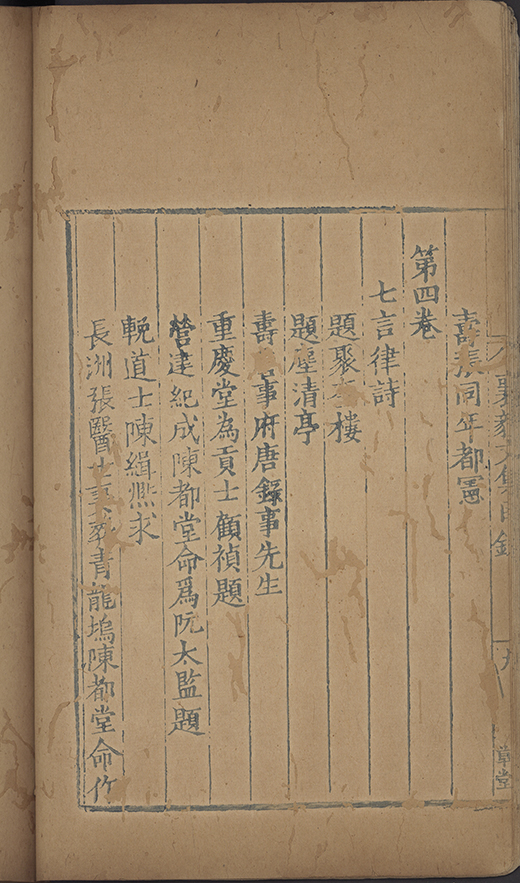 壽張同年都憲
第四卷
七言律詩
題聚樓
題塵清亭
壽事府唐錄事先生
重慶堂為貢士顧禎題
營建紀成陳都堂命爲阮太監題
輓道士陳緝熙求
長洲張醫士葬青龍塢陳都堂命作
襄毅文集目錄
九
草堂